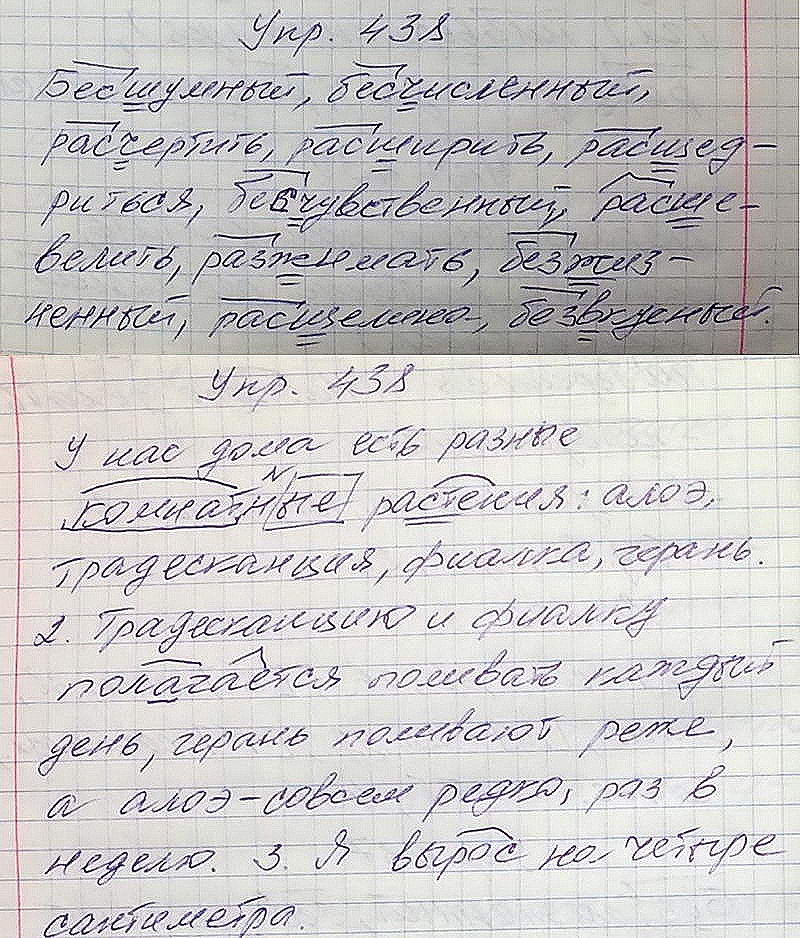 Упр. 438
Бесшумный, бесчисленный,
расчертить, расширить, расщед-
риться, бесчувственный, расше-
велить, разжимать, безжиз-
ненный, расщелина, безвкусный.
Упр. 438
У нас дома есть разные
комнатные растения: алоэ,
традесканция, фиалка, герань.
2. Традесканцию и фиалку
полагается поливать каждый
день, герань поливают реже,
а алоэ - совсем редко, раз в
неделю. 3. Я вырос на четыре
сантиметра.